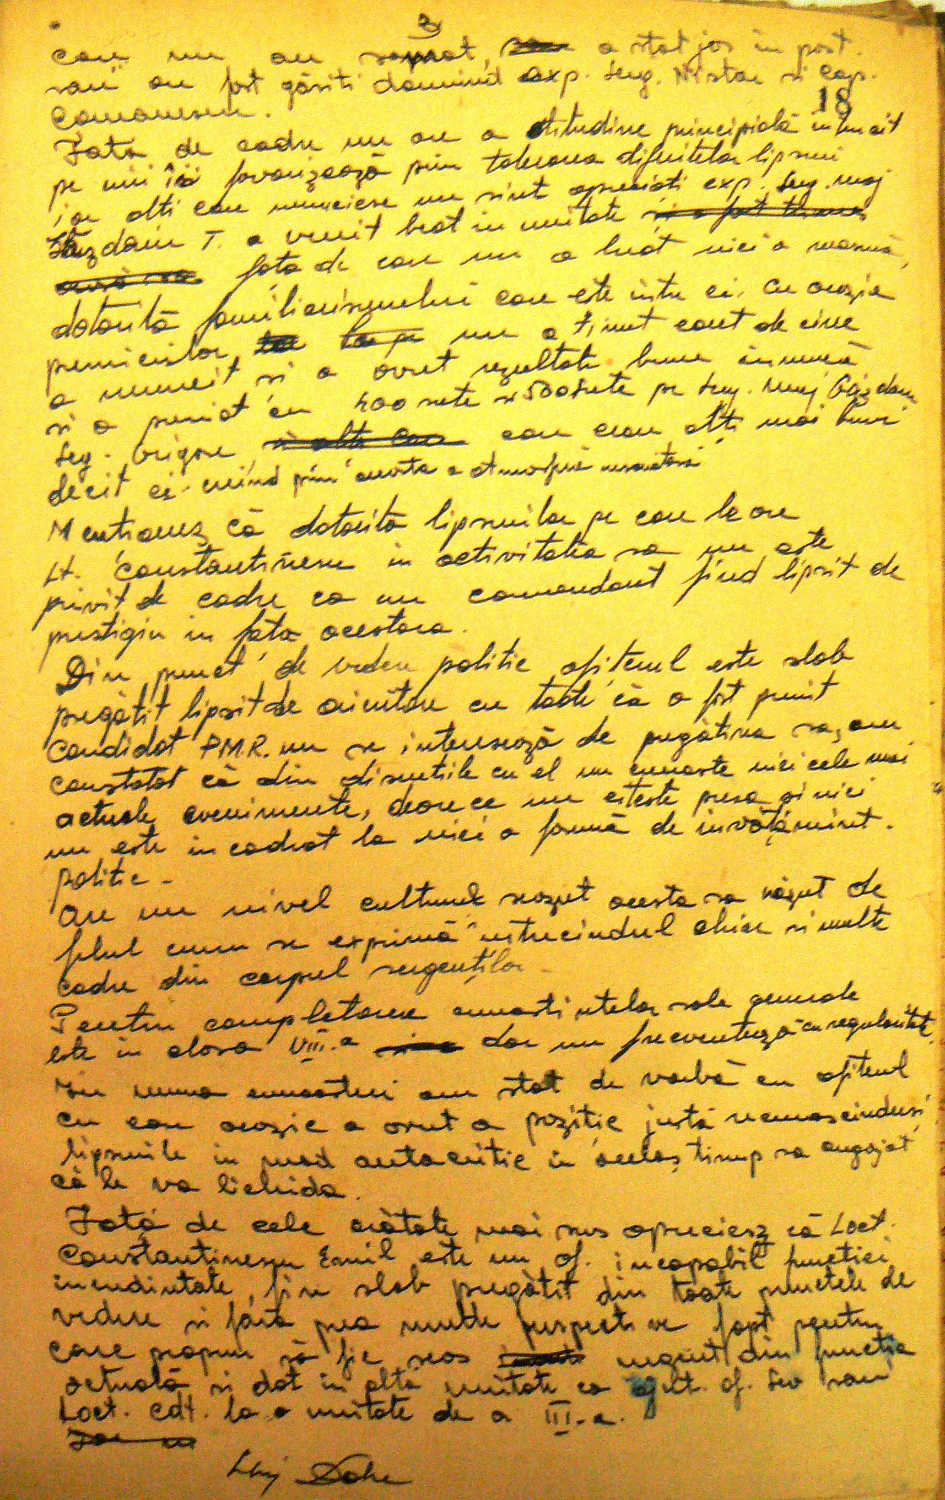 3
care nu au somat, a stat jos în post.
sau au fost găsiti dormind exp. serg. Nistor si cap.
Comanescu.
18
Fată de cadre nu are o atitudine principială întrucit
pe unii îi favorizează prin tolerarea diferitelor lipsuri
iar alti care muncesc nu sint apreciati exp. serg. maj
Găzdaru T. a venit beat in unitate si a fost
fata de care nu a luat nici o masură,
datorită familiarismului care este intre ei. Cu ocazia
premierilor, nu a tinut cont de cine
a muncit si a avut rezultate bune în muncă
si a premiat cu 400 sute si 500 sute pe serg. maj Găzdaru
serg. Grigore si alti care erau alti mai buni
decit ei. creind prin aceasta o atmosferă
Mentionez că datorita lipsurilor pe care le are
Lt. Constantinescu in activitatea sa nu este
privit de cadre ca un comandant fiind lipsit de
prestigiu in fata acestora.
Din punct de vedere politic ofiterul este slab
pregătit lipsit de orientare cu toate că a fost primit
candidat P.M.R. nu se interesează de pregătirea sa, am
constatat că din discutiile cu el nu cunoaste nici cele mai
actuale evenimente, deoarece nu citeste presa si nici
nu este incadrat la nici o formă de invătămint.
politic -
Are un nivel cultural scazut acesta sa văzut de
felul cum se exprimă intrecindul chiar si multe
cadre din corpul sergentilor -
Pentru completarea cunostintelor sale generale
este in clasa VIII.a dar nu frecventează cu regularitate.
In urma am stat de vorbă cu ofiterul
cu care ocazie a avut o pozitie justă recunoscindusi
lipsurile in mod autocritic si in acelas timp sa angajat
că le va lichida.
Fată de cele arătate mai sus apreciez că Loct.
Constantinescu Emil este un of. incapabil functiei
incredintate, fiin slab pregătit din toate punctele de
vedere si fara prea multe perspective fapt pentru
care propun să fie scos urgent din functia
actuală si dat in alta unitate ca of. Sev sau
Loct. Cdt. la o unitate de a III-a.
Lt. maj